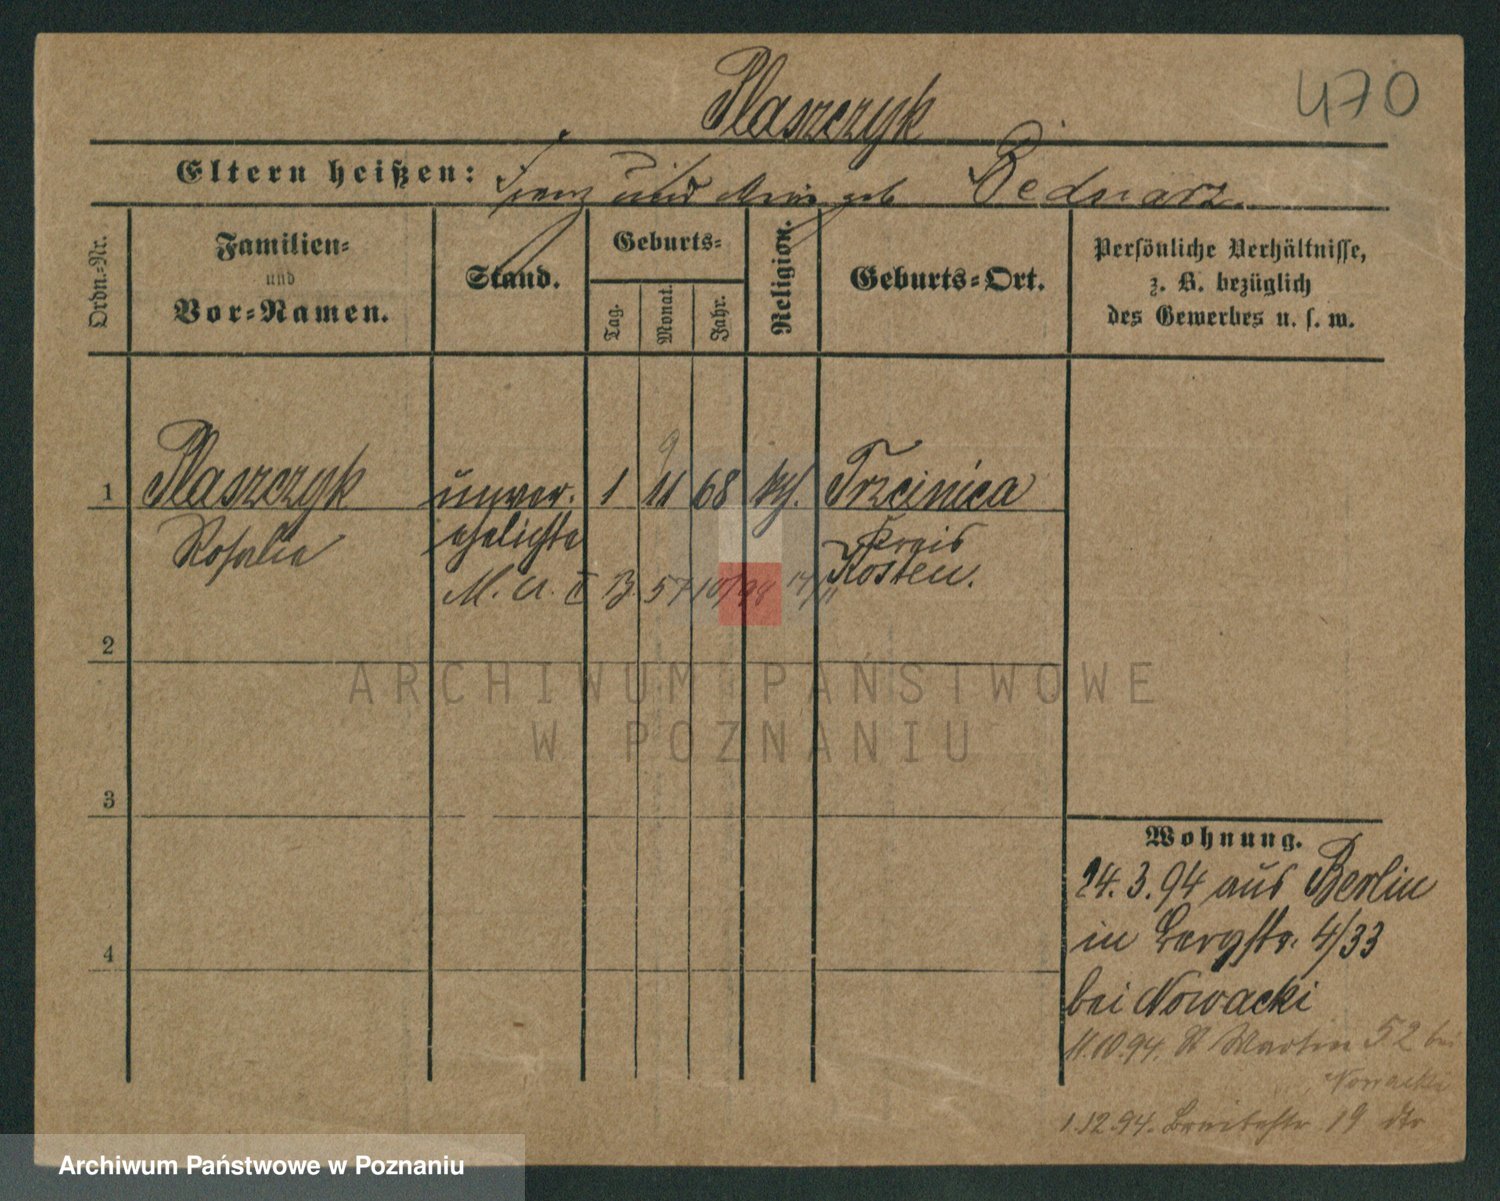 Plaszczyk
470
Eltern heißen: Franz und Marie geb Bednarz.
Ordn.-Nr.
Familien-
und
Vor-Namen.
Stand.
Geburts-
Tag.
Monat.
Jahr.
Religion.
Geburts-Ort.
Persönliche Verhältnisse,
z. B. bezüglich
des Gewerbes u. s. w.
9
1 Plaszczyk unver- 1 11 68 kth. Trzcinica
Rosalie ehelichte Kreis
Kosten.
M. A. II B 57/10/94 14/11
2
3
4
Wohnung.
24.3.94 aus Berlin
in Bergstr. 4/33
bei Nowacki
11.10.94. St Martin 52 bei
Nowacki
1.12.94. Breitestr 19 dto
ARCHIWUM PAŃSTWOWE
W POZNANIU
Archiwum Państwowe w Poznaniu